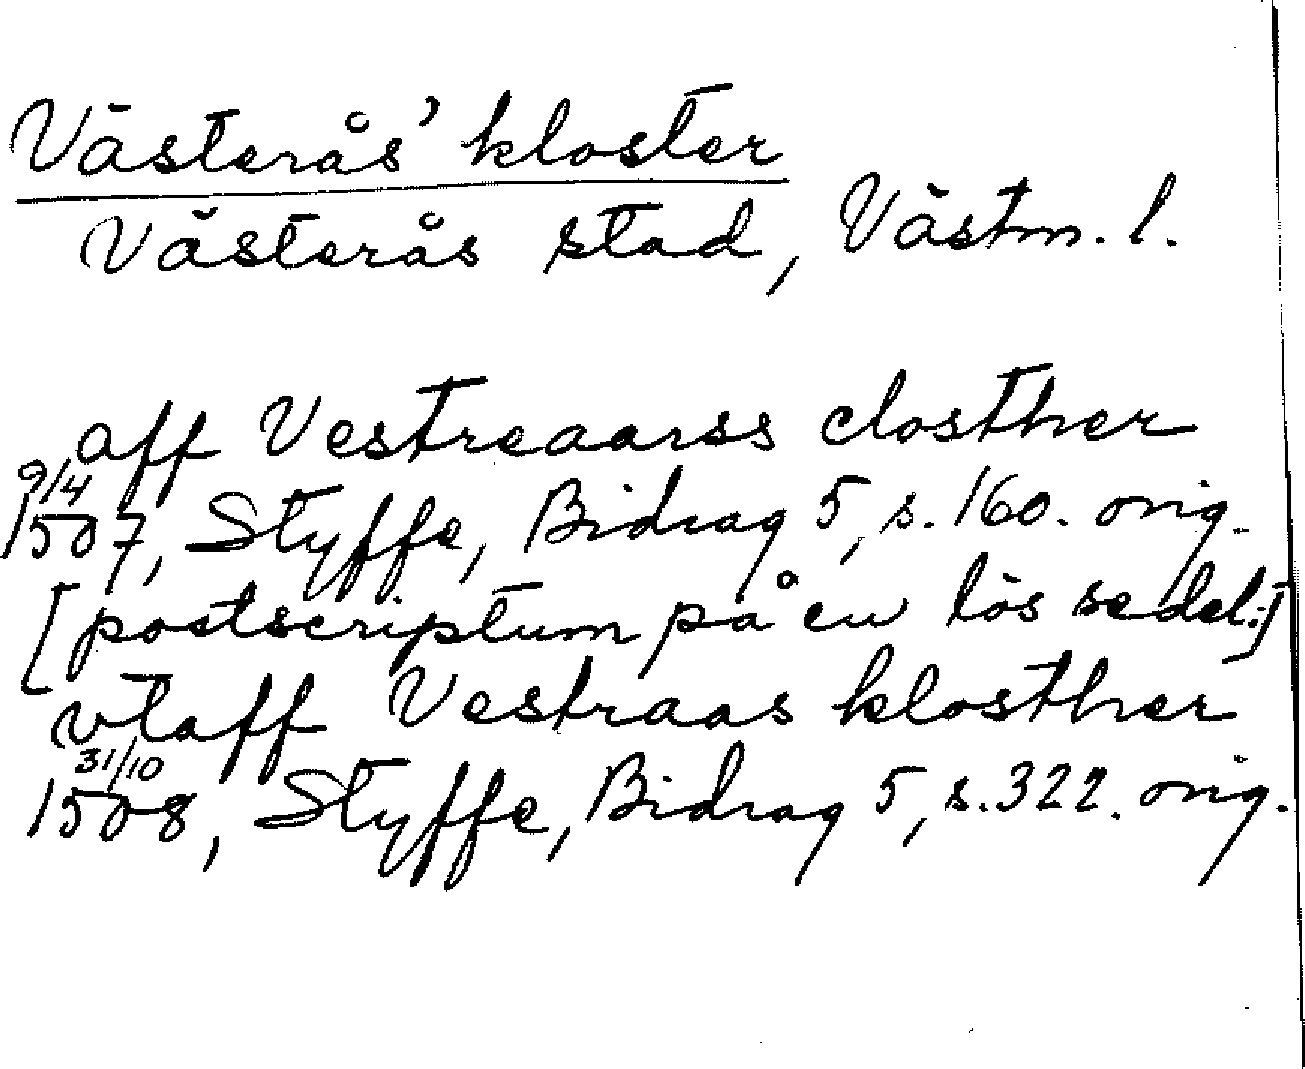 Västerås' kloster
Västerås stad, Västm. l.
aff Vestreaarss closther
9/4
1507, Styffe, Bidrag 5, s. 160. orig.
[postscriptum på en lös sedel:]
vtaff Vestraas klosther
31/10
1508, Styffe, Bidrag 5, s. 322. orig.